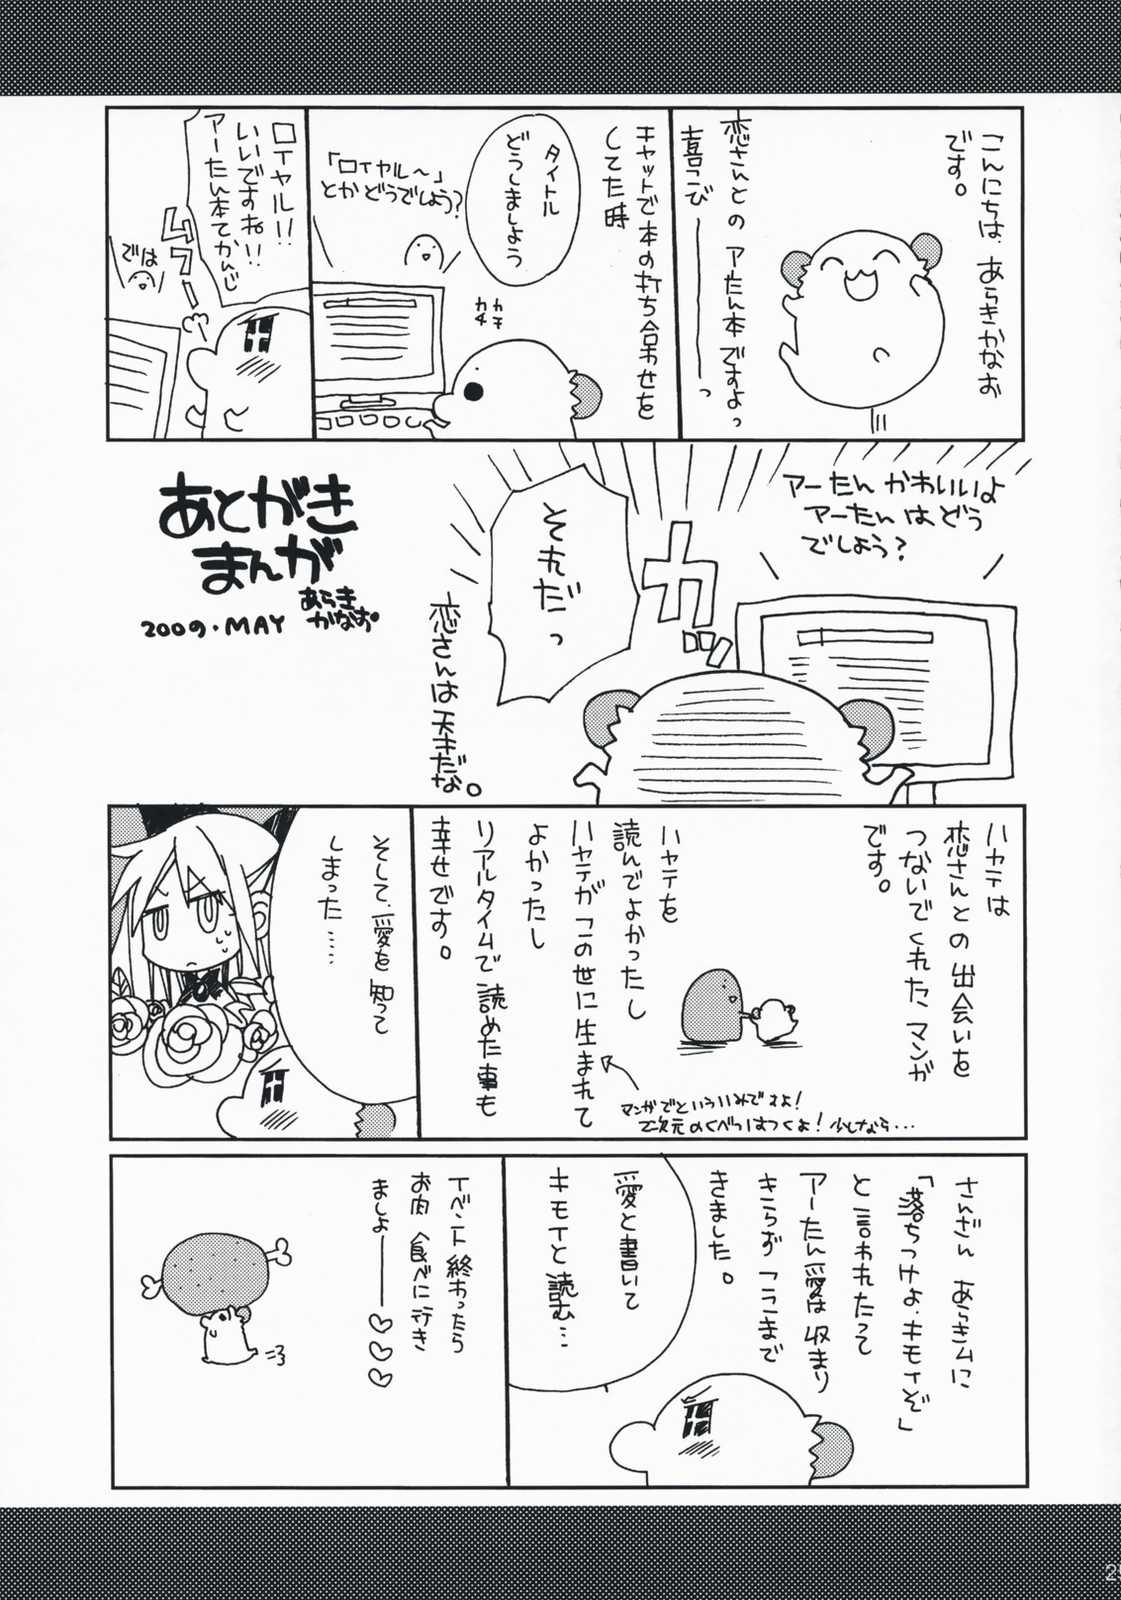 こんにちは、あらきかなお
です。
恋さんとの アーたん本ですよっ
喜こび───っ
チャットで本の打ち合わせを
してた時
タイトル
どうしましよう
「ロイヤル〜」
とか どうでしよう?
カチ
カチ
ロイヤル!!
いいですね!!
アーたん本てかんじ
ムフー
では
アーたん かわいいよ
アーたん はどう
でしよう?
カッ
それだっ
恋さんは天才だな。
あとがき
まんが
あらき
かなお。
2009.MAY
ハヤテは
恋さんとの 出会いを
つないでくれた マンガ
です。
ハヤテを
読んでよかったし
ハヤテがこの世に生まれて
よかったし
リアルタイムで 読めた事も
幸せです。
マンガでといういみですよ!
二次元のくべつはつくよ!少しなら...
そして、愛を 知って
しまった……
さんざん あらきムに
「落ちつけよ、キモイぞ」
と 言われたって
アーたん愛は 収まり
きらず ここまで
きました。
愛と書いて
キモイと読む…
イベント 終わったら
お肉 食べに 行き
ましよ───♡♡♡
2